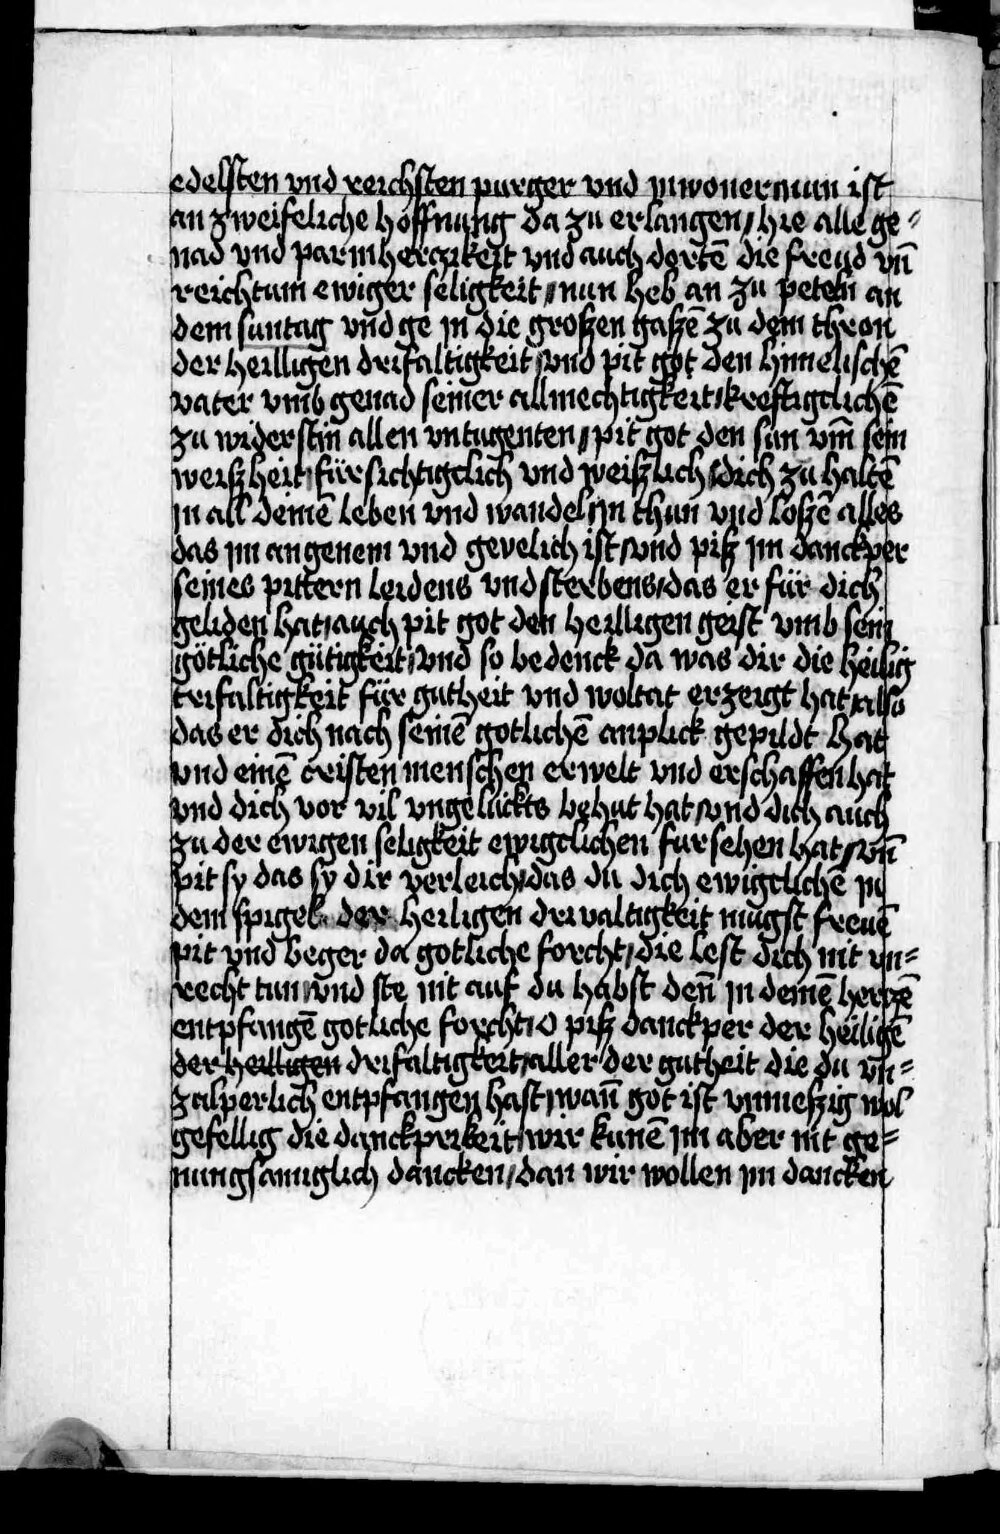 edelsten vnd reichsten purger vnd jnwoner nun ist
an zweifeliche hoffnung da zu erlangen / hie alle ge=
nad vnd parmherczikeit vnd auch dortē die freud vn̄
reichtum ewiger seligkeit / nun heb an zu peten an
dem suntag vnd ge jn die groszen gaszē zu dem thron
der heilligen drifaltigkeit / vnd pit got den himelischē
vater vmb genad seiner allmechtigkeit / kreftigclichē
zu widerstin allen vntugenten / pit got den sun vm̄ sein
weiszheit / fürsichtigclich vnd weiszlich / dich zu haltē
jn all deinē leben vnd wandel jn thun vnd loszē alles
das jm angenem vnd gevelich ist / vnd pisz jm danckper
seines pittern leidens vnd sterbens / das er für dich
geliden hat / auch pit got den heilligen geist vmb sein
götliche gütigkeit / vnd so bedenck da was dir die heilig
trifaltigkeit für gutheit vnd woltat erzeigt hat / also
das er dich nach seinē gotlichē anplick gepildt hat
vnd einē cristen menschen erwelt vnd erschaffen hat
vnd dich vor vil vngelückts behut hat / vnd dich auch
zu der ewigen seligkeit ewigclichen fursehen hat / vn̄
pit sy das sy dir verleich / das du dich ewigclichē jn
dem spigel der heiligen drivaltigkeit mugst freuē
pit vnd beger da gotliche forcht / die lest dich nit vn=
recht tun / vnd ste nit auf du habst den̄ jn deinē herczē
entpfangē gotliche forcht / O pisz danckper der heiligē
der heilligen drifaltigkeit / aller der gutheit die du vn̄=
zalperlich entpfangen hast / wan̄ got ist vnmeszig wol
gefellig die danckprikeit / wir kunē jm aber nit ge=
nungsamiglich dancken / dan wir wollen jm dancken